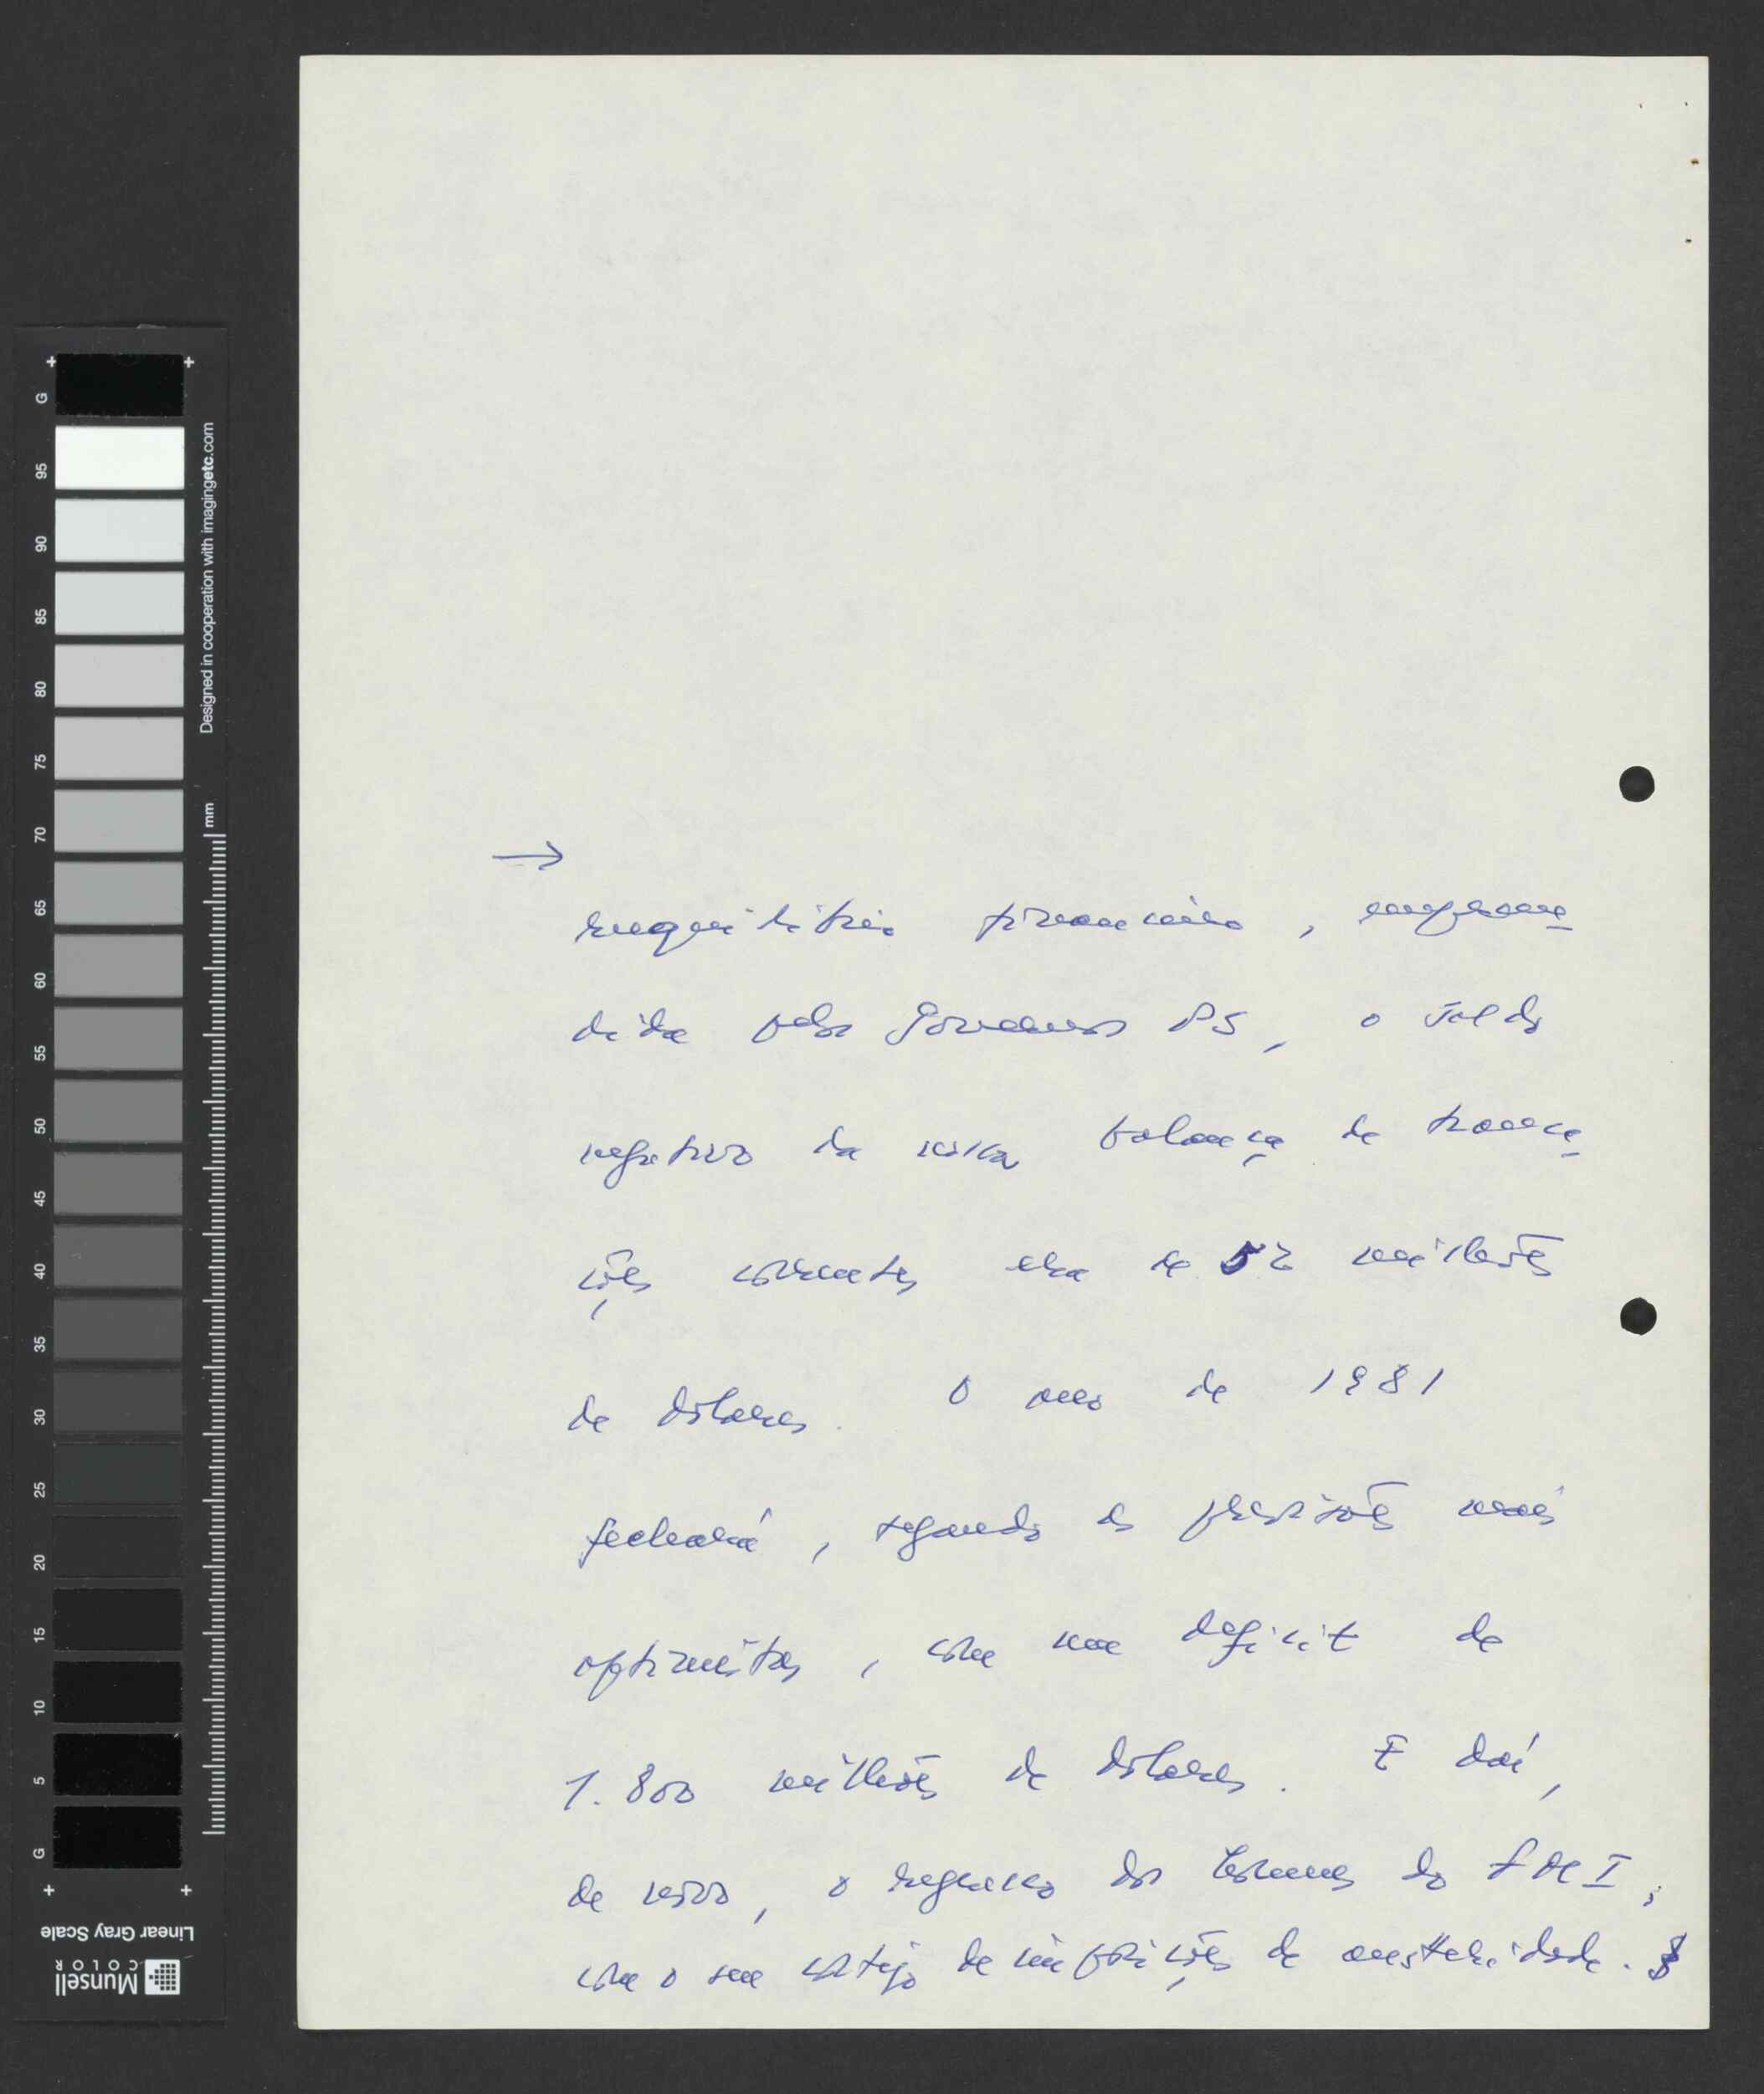 →
reequilíbrio financeiro, empreen
dida pelo Governo PS, o saldo
negativo da nossa balança de transac
ções correntes era de 52 milhões
de dólares. O ano de 1981
fechará, segundo as previsões mais
optimistas, com um deficit de
1.800 milhões de dólares. E daí,
de novo, o regresso dos homens do FMI,
com o seu cortejo de imposições de austeridade.
G 95 90 85 80 75 70 65 60 55 50 45 40 35 30 25 20 15 10 5 G
Designed in cooperation with imagingetc.com
mm
Linear Gray Scale
Munsell
COLOR